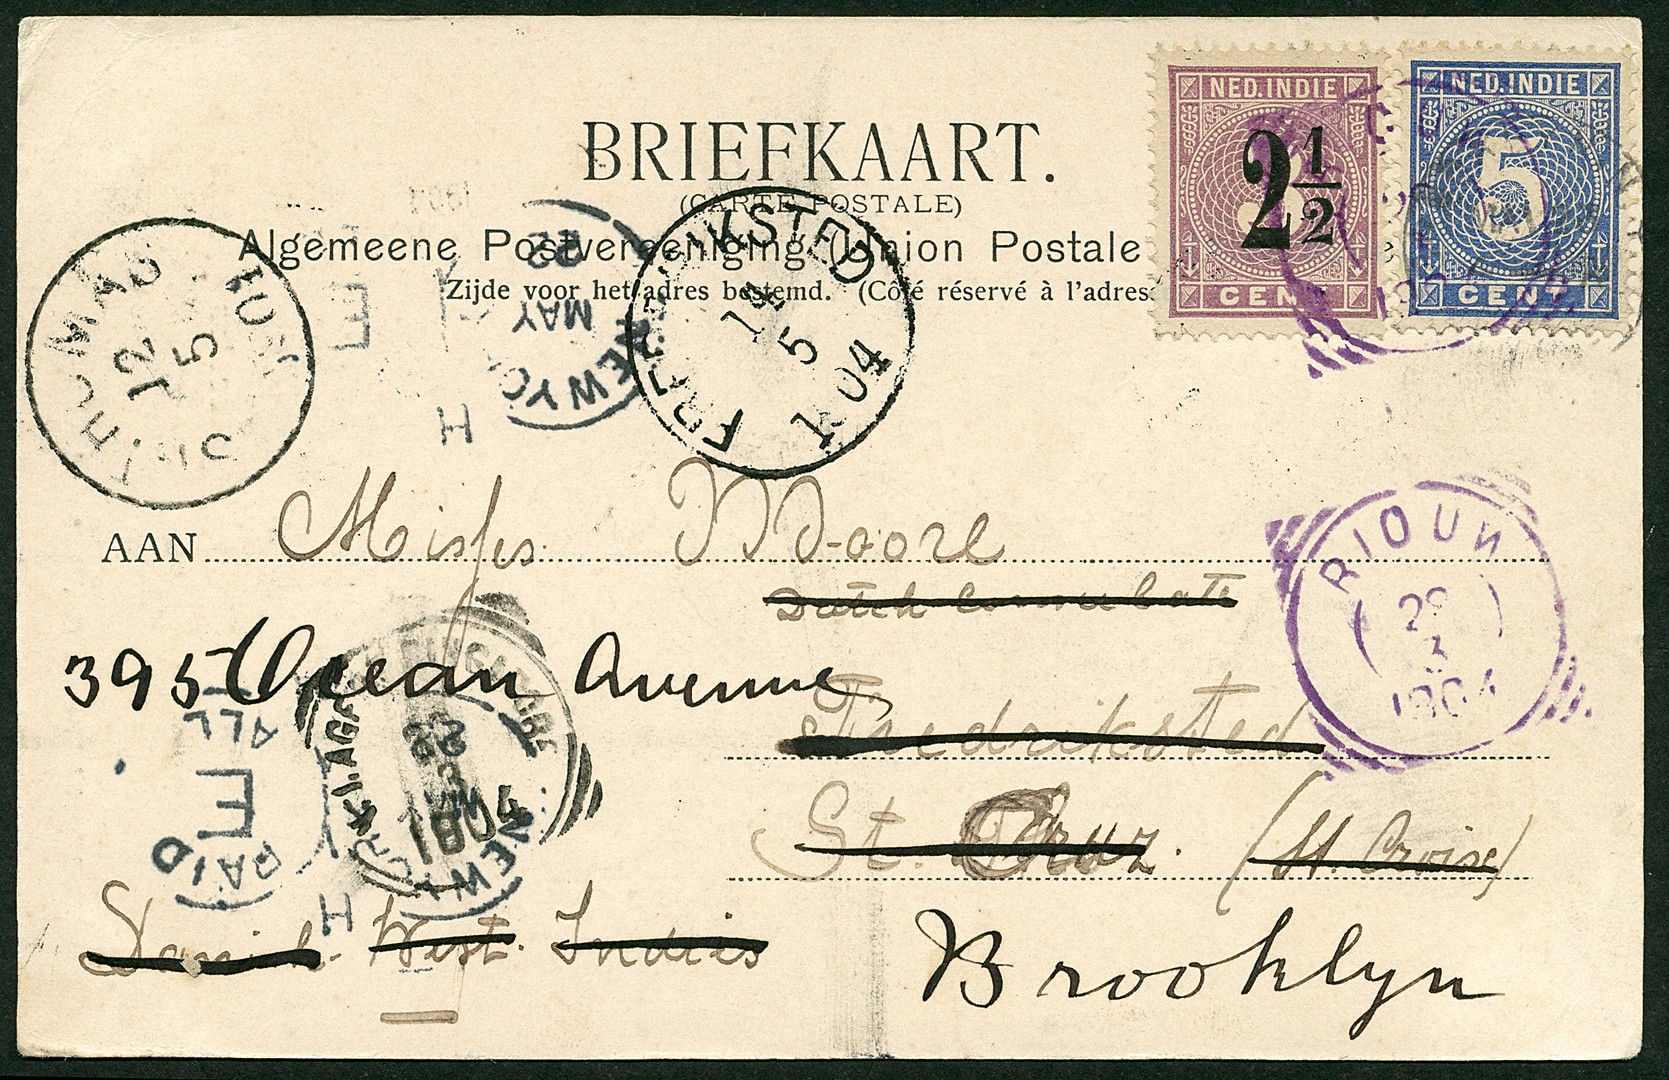 BRIEFKAART.
(CARTE POSTALE)
Algemeene Postvereeniging (Union Postale
Zijde voor het adres bestemd. (Côté réservé à l'adres
NED. INDIE
2½
CENT
NED. INDIE
5
CENT
ST. THOMAS
12
5
1904
22
MAY
NEW YO
H
E
FREDERIKSTED
14
5
04
AAN Miss Moore
Dutch Consulate
RIOUW
29
3
1904
395 Ocean Avenue
Fredriksted
St. Cruz. (St. Croix)
Danish. West. Indies
Brooklyn
1904
NEW
PAID
ALL
E
H